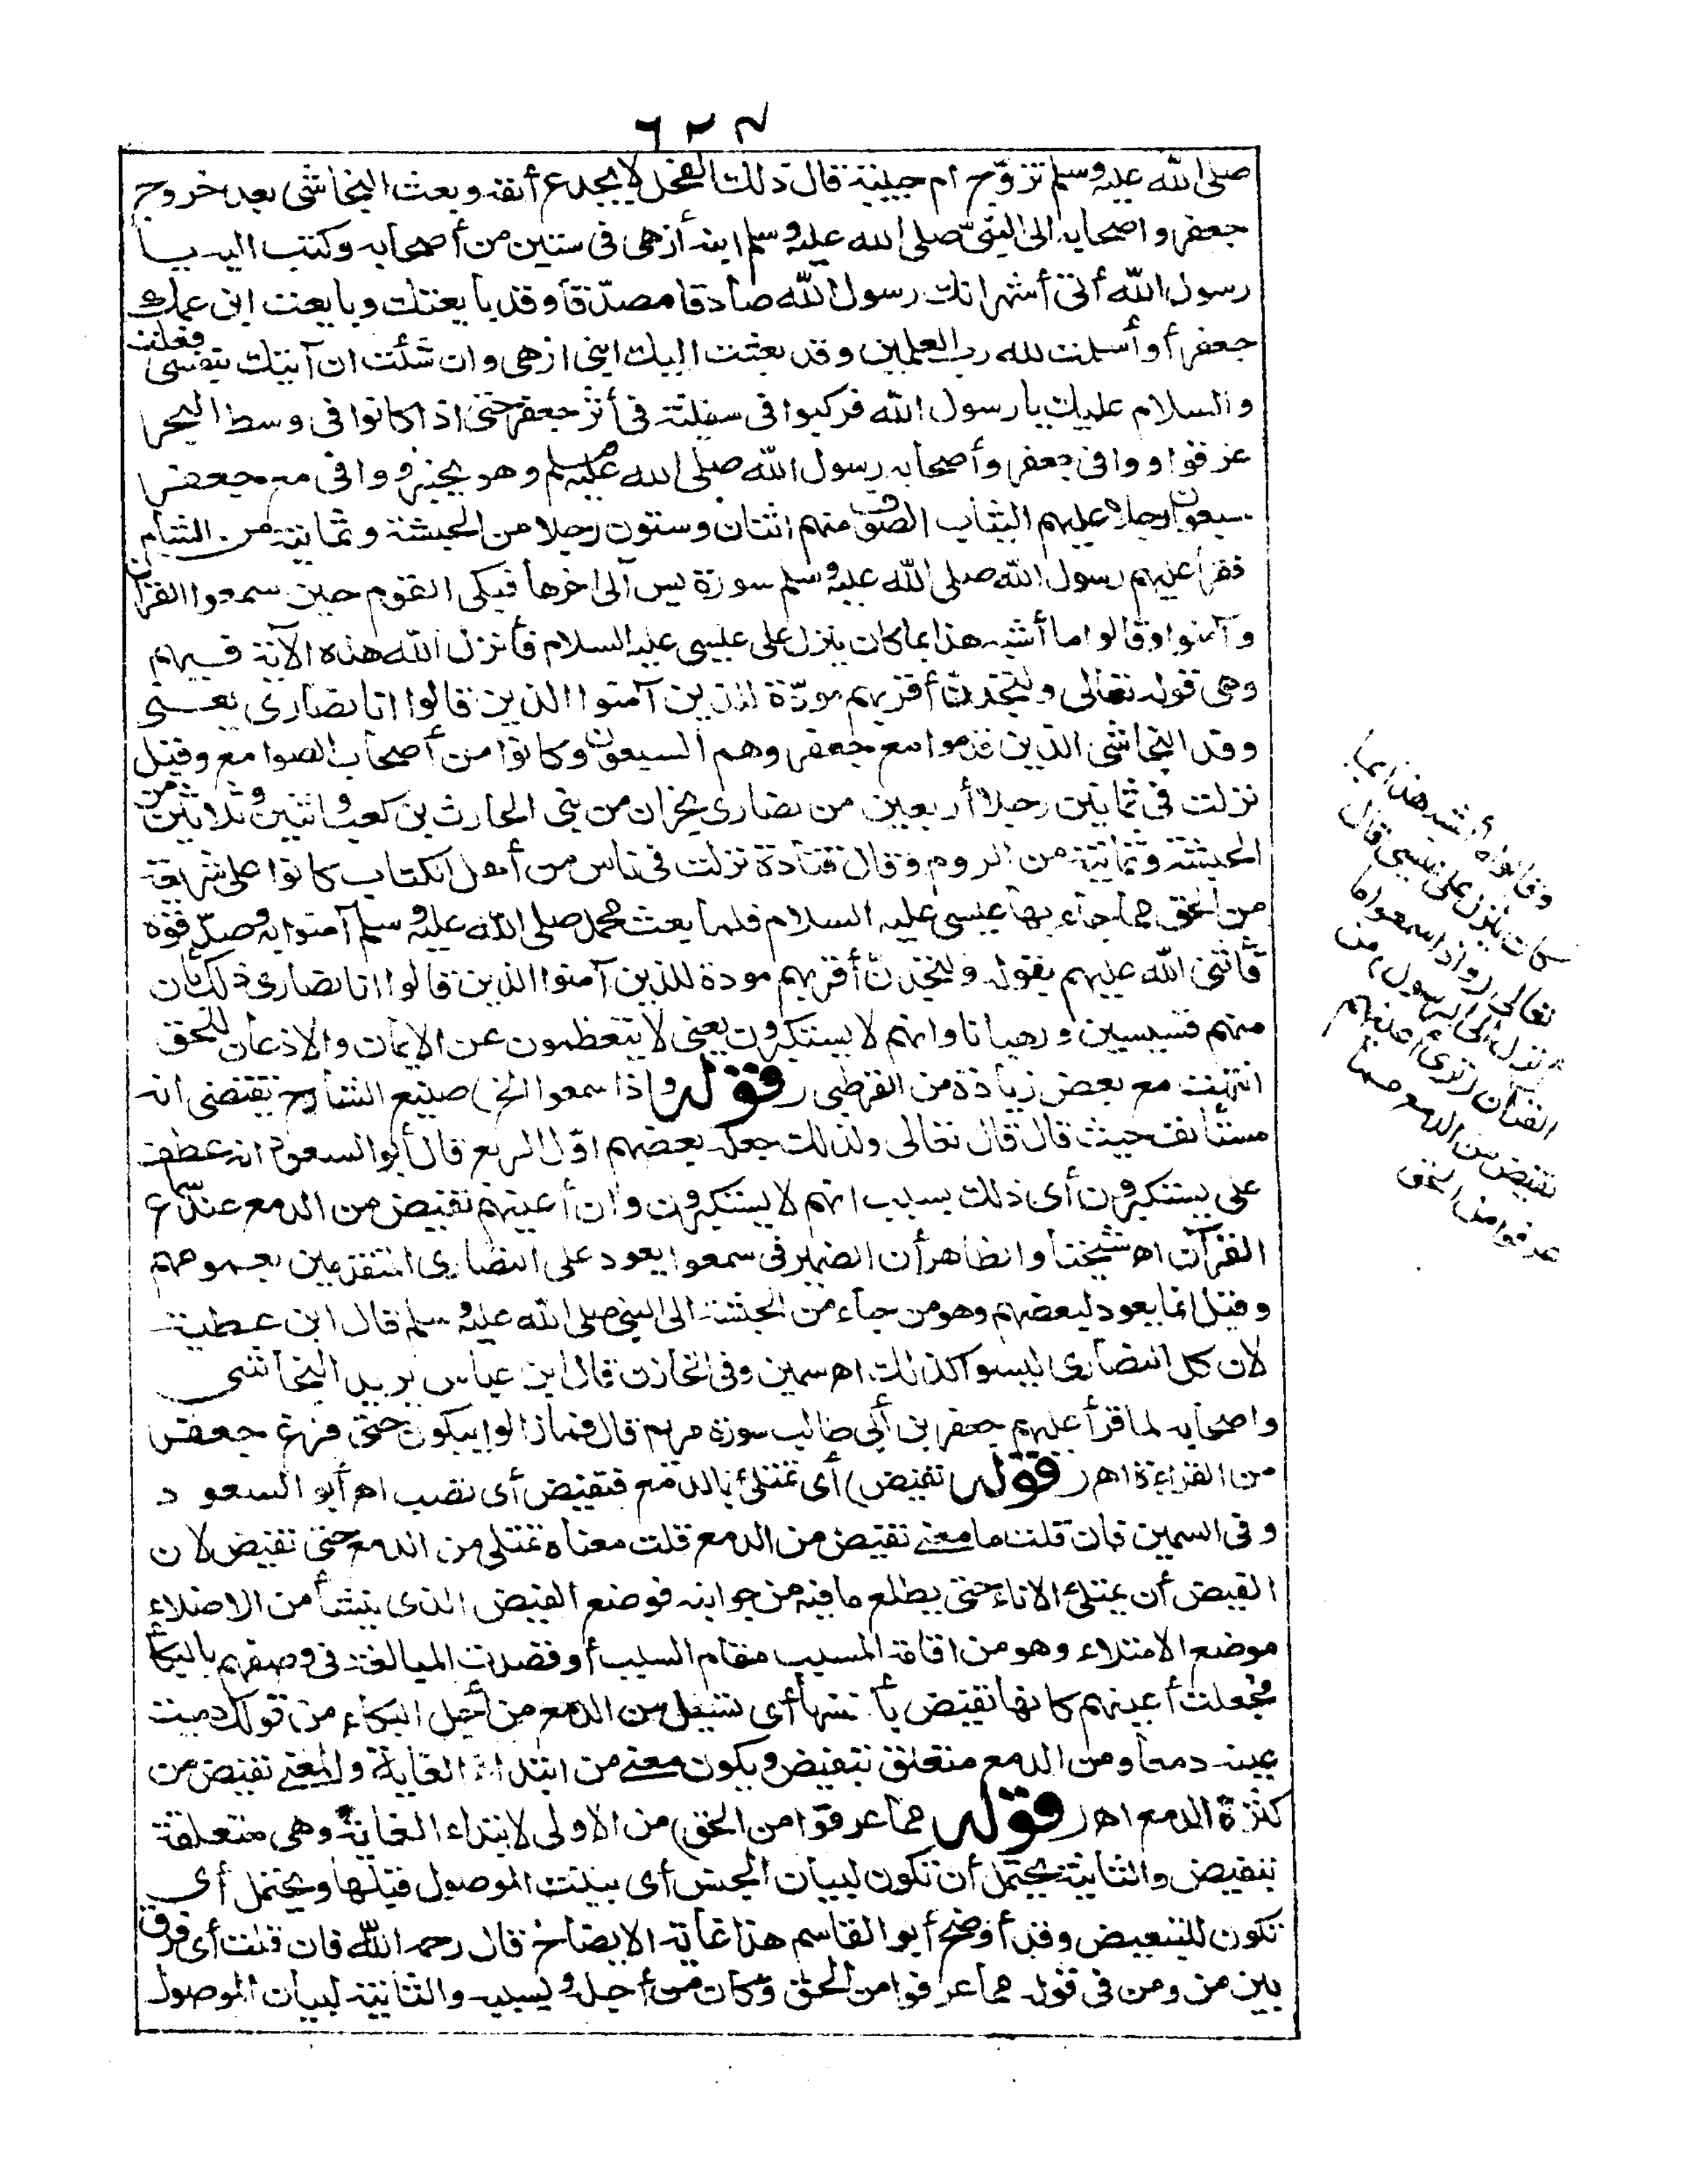 ٦٢٧
صلى الله عليه وسلم تزوّج ام حبيبة قال ذلك الفحل لا يجدع أنفه وبعث النجاشى بعد خروج
جعفر واصحابه الى النبىّ صلى الله عليه وسلم ابنه أزهى فى ستين من أصحابه وكتب اليه يا
رسول الله أنى أشهد انك رسول الله صادقا مصدّقا وقد بايعتك وبايعت ابن عمك
جعفر أو أسلمت لله رب العلمين وقد بعثت اليك ابنى ازهى وان شئت ان آتيتك بنفسى فعلت
والسلام عليك يا رسول الله فركبوا فى سفينة فى أثر جعفر حتى اذا كانوا فى وسط البحر
غرقوا ووافى جعفر وأصحابه رسول الله صلى الله عليه وسلم وهو بخيبر ووافى مع جعفر
سبعون رجلا عليهم الثياب الصوف منهم اثنان وستون رجلا من الحبشة وثمانية من الشام
فقرأ عليهم رسول الله صلى الله عليه وسلم سورة يس الى اخرها فبكى القوم حين سمعوا القرآن
وآمنوا وقالوا ما أشبه هذا بما كان ينزل على عيسى عليه السلام فأنزل الله هذه الآية فيهم
وهى قوله تعالى ولتجدنّ أقربهم مودّة للذين آمنوا الذين قالوا انا نصارى يعنى
وفد النجاشى الذين قدموا مع جعفر وهم السبعون وكانوا من أصحاب الصوامع وقيل
نزلت فى ثمانين رجلا أربعين من نصارى نجران من بنى الحارث بن كعب واثنين وثلاثين من
الحبشة وثمانية من الروم وقال قتادة نزلت فى ناس من أهل الكتاب كانوا على شريعة
من الحق مما جاء بها عيسى عليه السلام فلما بعث محمد صلى الله عليه وسلم آمنوا به وصدّقوه
فأثنى الله عليهم بقوله ولتجدنّ أقربهم مودة للذين آمنوا الذين قالوا انا نصارى ذلك بأن
منهم قسيسين ورهبانا وانهم لا يستكبرون يعنى لا يتعظمون عن الايمان والاذعان للحق
انتهت مع بعض زيادة من القرطبى (قوله واذا سمعوا الخ) صنيع الشارح يقتضى انه
مستأنف حيث قال قال تعالى ولذلك جعله بعضهم اوّل الربع قال أبو السعود انه عطف
على يستكبرون أى ذلك بسبب انهم لا يستكبرون وان أعينهم تفيض من الدمع عند سماع
القرآن اه شيخنا والظاهر أن الضمير فى سمعوا يعود على النصارى المتقدمين بعمومهم
وقيل انما يعود لبعضهم وهو من جاء من الحبشة الى النبى صلى الله عليه وسلم قال ابن عطية
لان كل النصارى ليسوا كذلك اه سمين وفى الخازن قال ابن عباس يريد النجاشى
واصحابه لما قرأ عليهم جعفر بن أبى طالب سورة مريم قال فما زالوا يبكون حتى فرغ جعفر
من القراءة اه (قوله تفيض) أى تمتلئ بالدمع فتفيض أى تصب اه أبو السعود
وفى السمين فان قلت ما معنى تفيض من الدمع قلت معناه تمتلئ من الدمع حتى تفيض لان
الفيض أن يمتلئ الاناء حتى يطلع ما فيه من جوانبه فوضع الفيض الذى ينشأ من الامتلاء
موضع الامتلاء وهو من اقامة المسبب مقام السبب أو قصدت المبالغة فى وصفهم بالبكاء
فجعلت أعينهم كانها تفيض بأنفسها أى تسيل من الدمع من أجل البكاء من قولك دمعت
عينه دمعا ومن الدمع متعلق بتفيض ويكون معنى من ابتداء الغاية والمعنى تفيض من
كثرة الدمع اه (قوله مما عرفوا من الحق) من الاولى لابتداء الغاية وهى متعلقة
بتفيض والثانية يحتمل أن تكون لبيان الجنس أى بينت الموصول قبلها ويحتمل أى
تكون للتبعيض وقد أوضح أبو القاسم هذا غاية الايضاح قال رحمه الله فان قلت أى فرق
بين من ومن فى قوله مما عرفوا من الحق وكان من أجله وبسببه والثانية لبيان الموصول
وقالوا ما أشبه هذا بما
كان ينزل على عيسى قال
تعالى (واذا سمعوا ما
أنزل الى الرسول) من
القرآن (ترى أعينهم
تفيض من الدمع مما
عرفوا من الحق